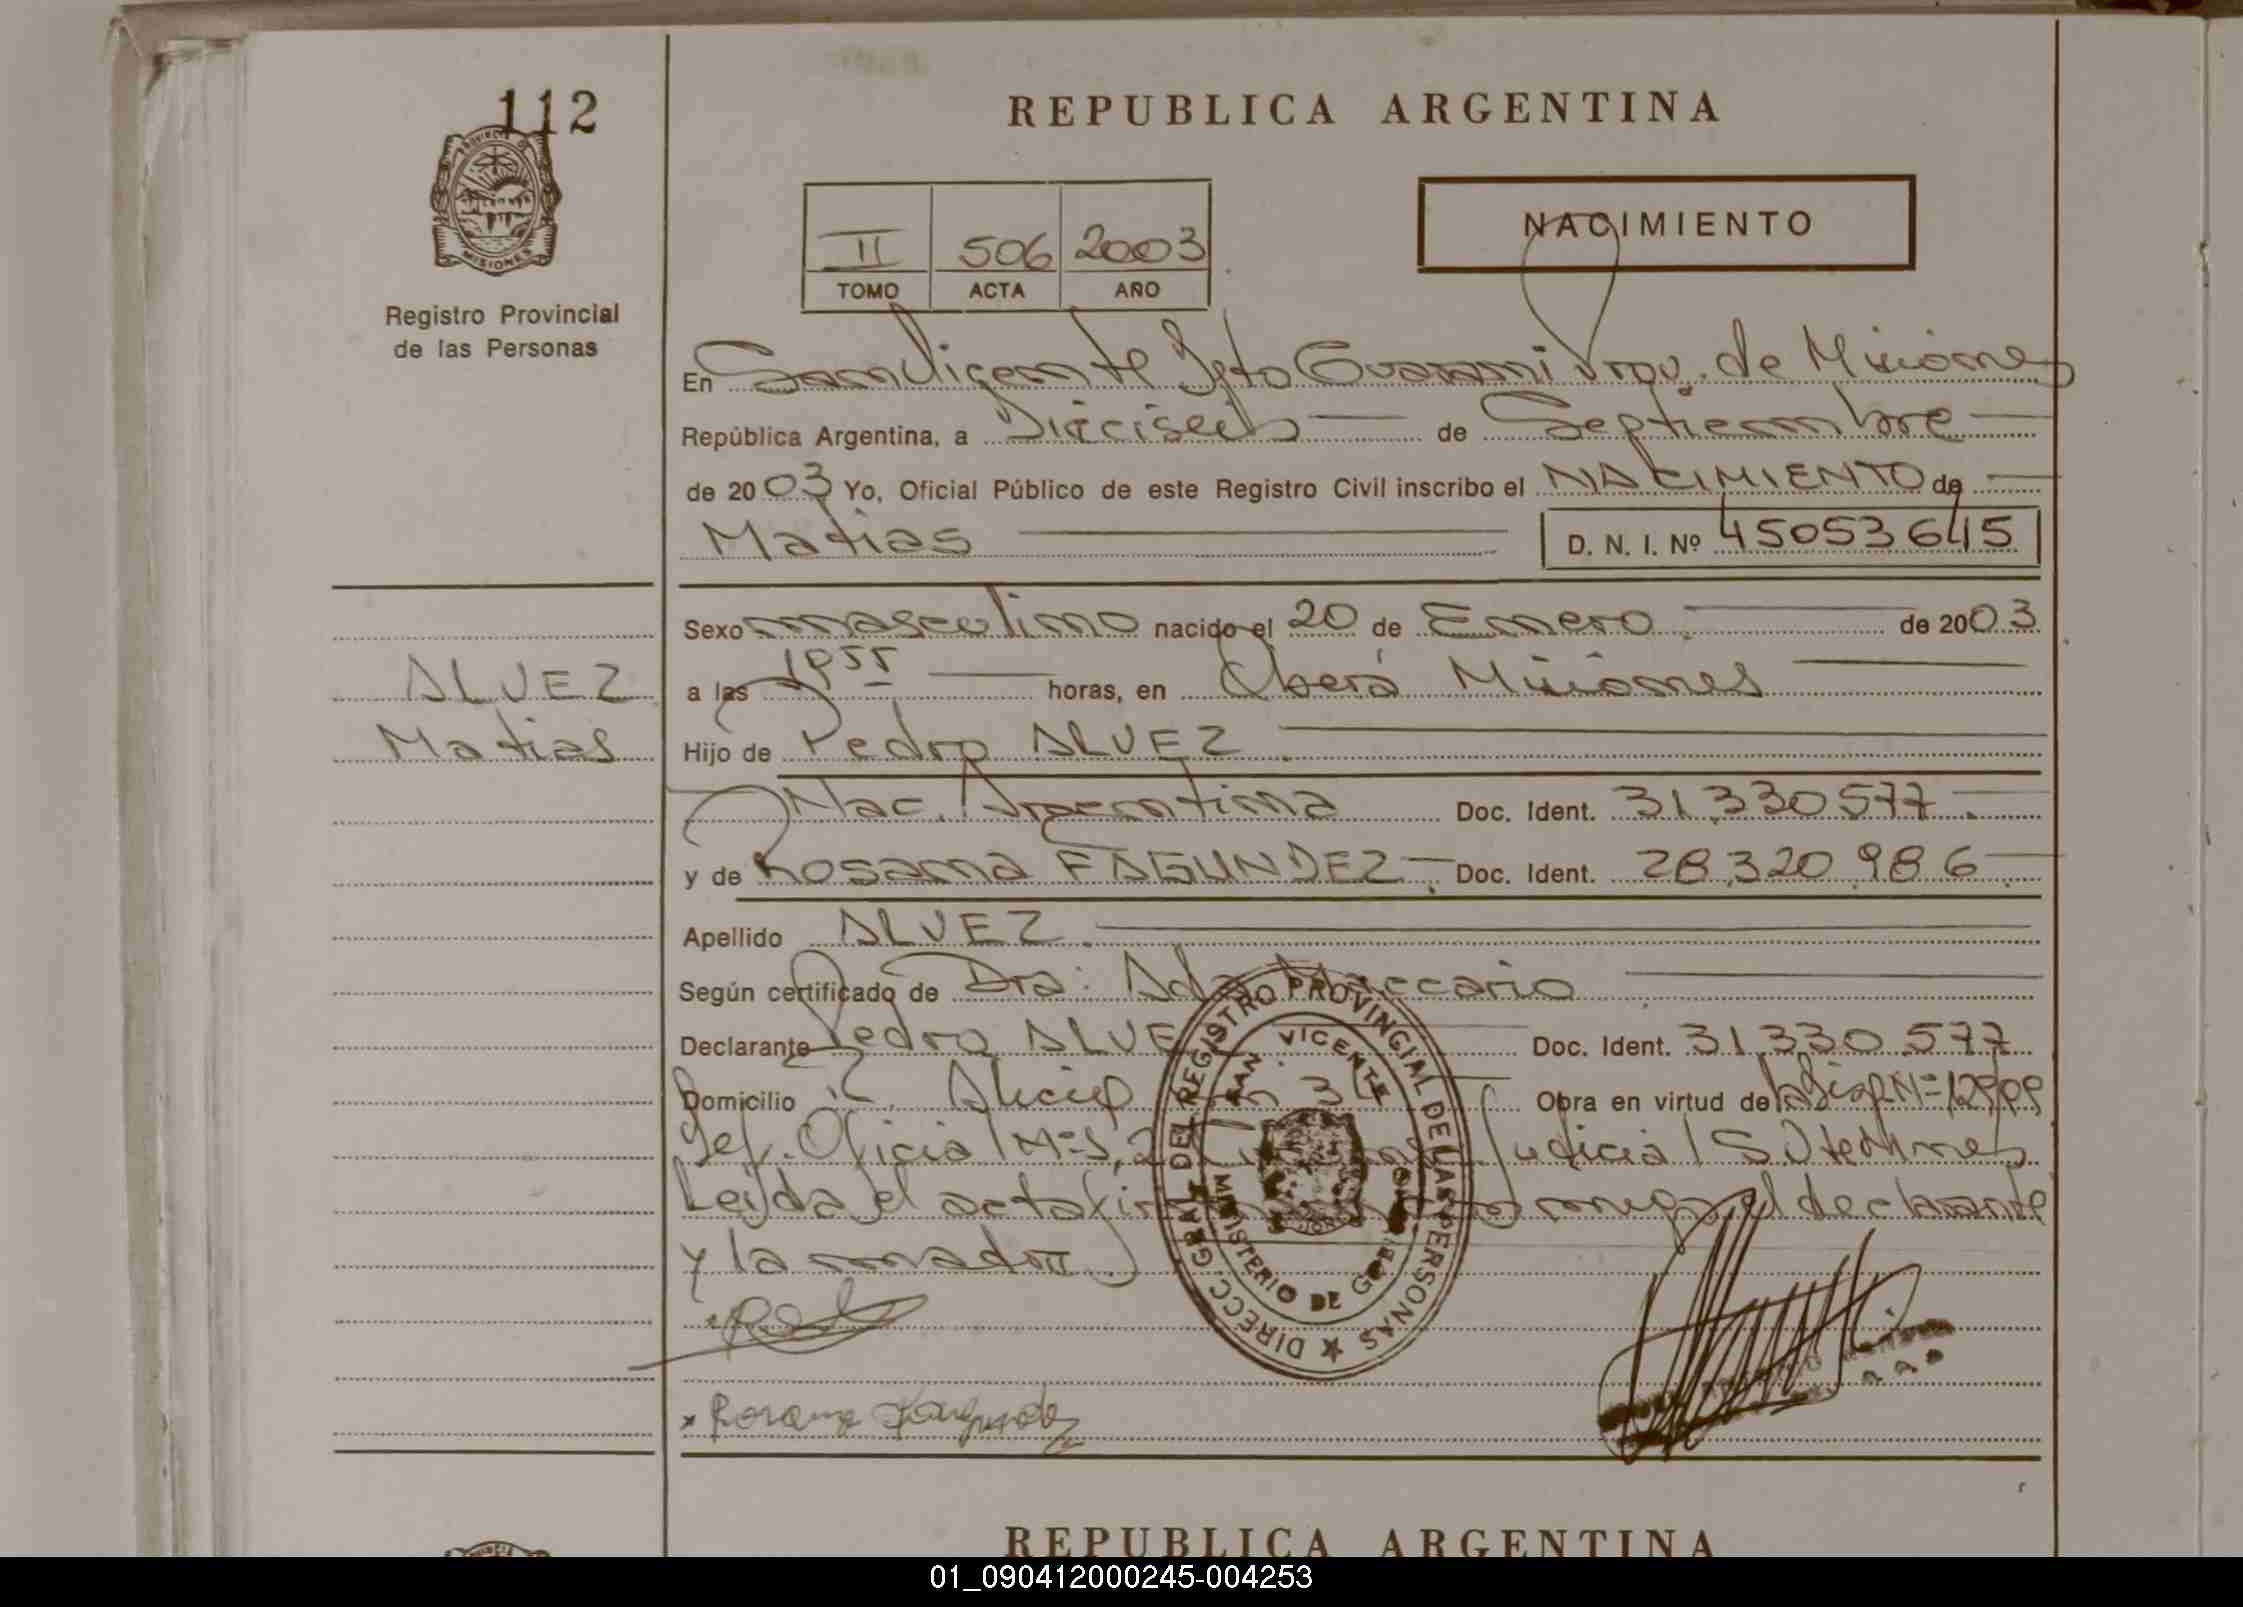 112
REPUBLICA ARGENTINA
PROVINCIA DE
MISIONES
Registro Provincial
de las Personas
II 506 2003
TOMO ACTA AÑO
NACIMIENTO
En San Vicente Dpto Guarani Prov. de Misiones
República Argentina, a Dieciseis de Septiembre
de 2003 Yo, Oficial Público de este Registro Civil inscribo el NACIMIENTO de
Matias
D. N. I. Nº 45053645
Sexo masculino nacido el 20 de Enero de 2003
ALVEZ
a las 1955 horas, en Oberá Misiones
Matias
Hijo de Pedro ALVEZ
Nac. Argentina Doc. Ident. 31.330.577
y de Rosana FAGUNDEZ Doc. Ident. 28.320.986
Apellido ALVEZ
Según certificado de Dra: Ada Maccario
Declarante Pedro ALVE Doc. Ident. 31.330.577
Domicilio Obra en virtud de
Def. Oficial Nº Judicial
Leida el acta conmigo el declarante
y la madre
DIRECC. GRAL. DEL REGISTRO PROVINCIAL DE LAS PERSONAS
SAN VICENTE
MINISTERIO DE GOB
Rosana Fagundez
REPUBLICA ARGENTINA
01_090412000245-004253